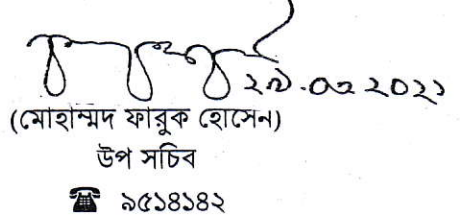 ২৯.০৩.২০২১
(মোহাম্মদ ফারুক হোসেন)
উপ সচিব
☎ ৯৫১৪১৪২